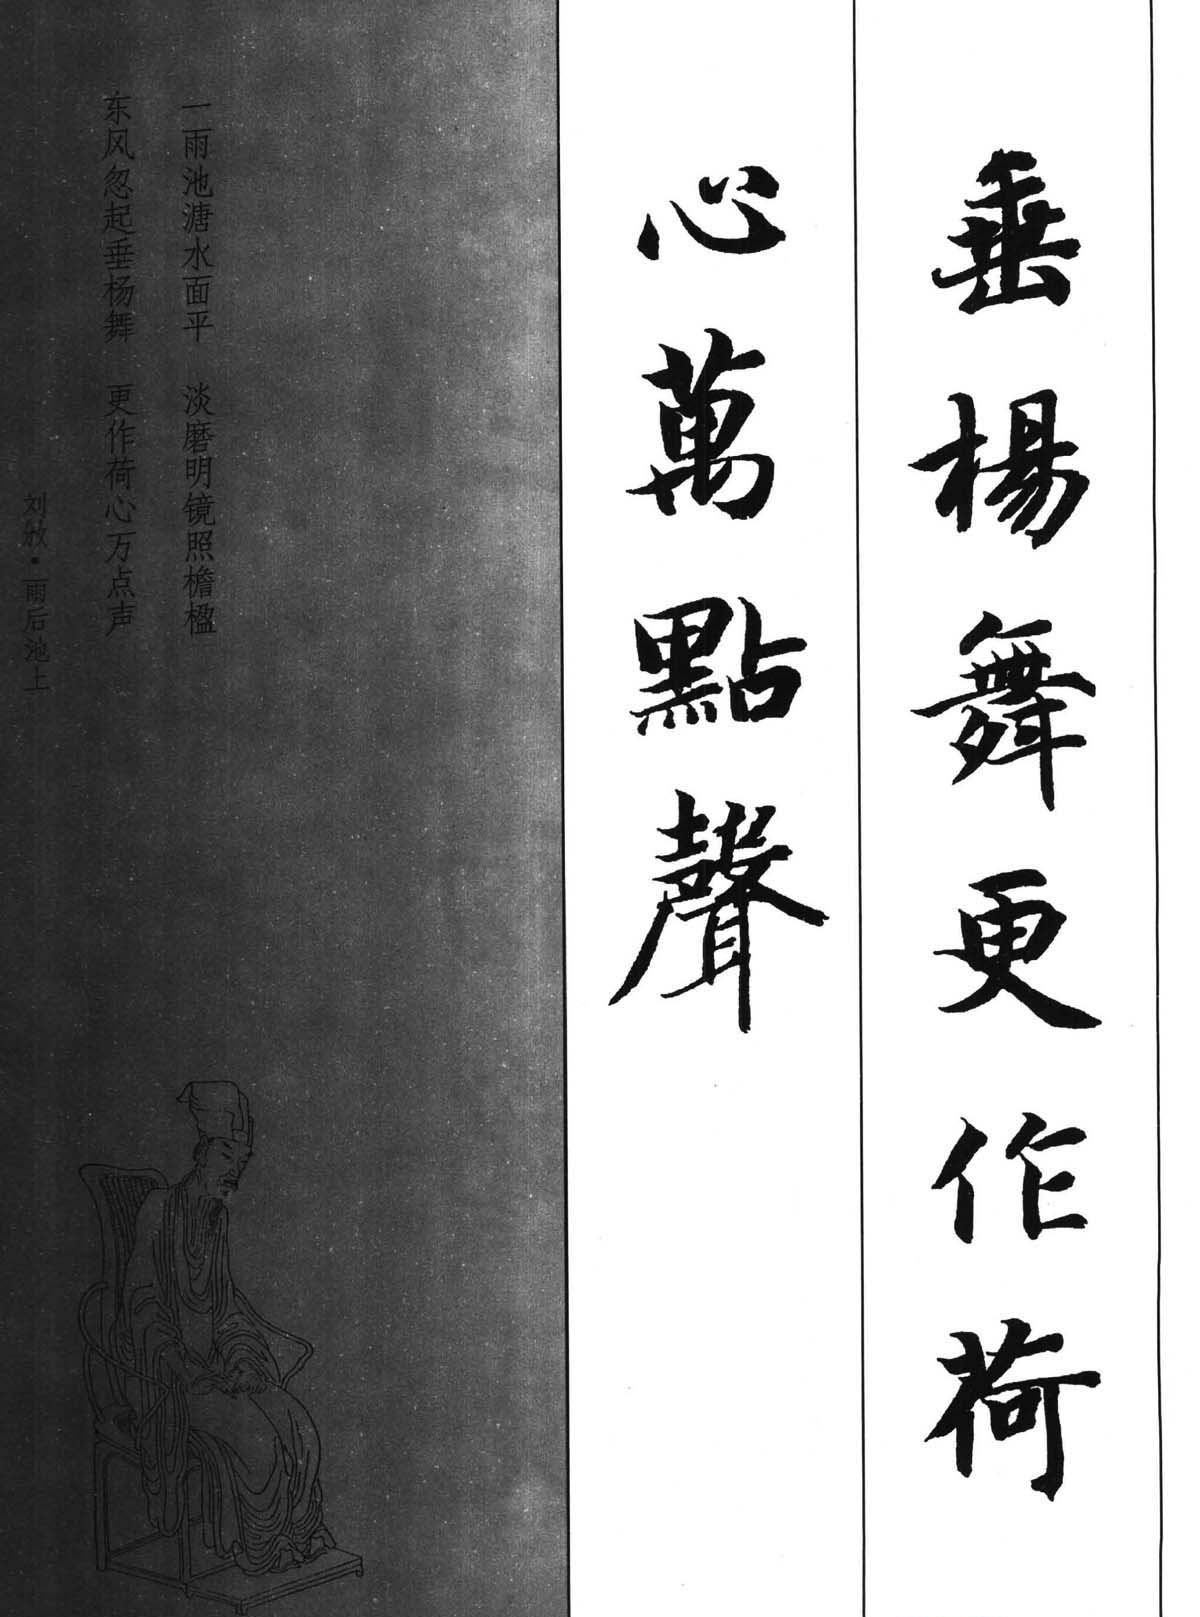 垂楊舞更作荷
心萬點聲
一雨池溏水面平　淡磨明镜照檐楹
东风忽起垂杨舞　更作荷心万点声
刘攽·雨后池上